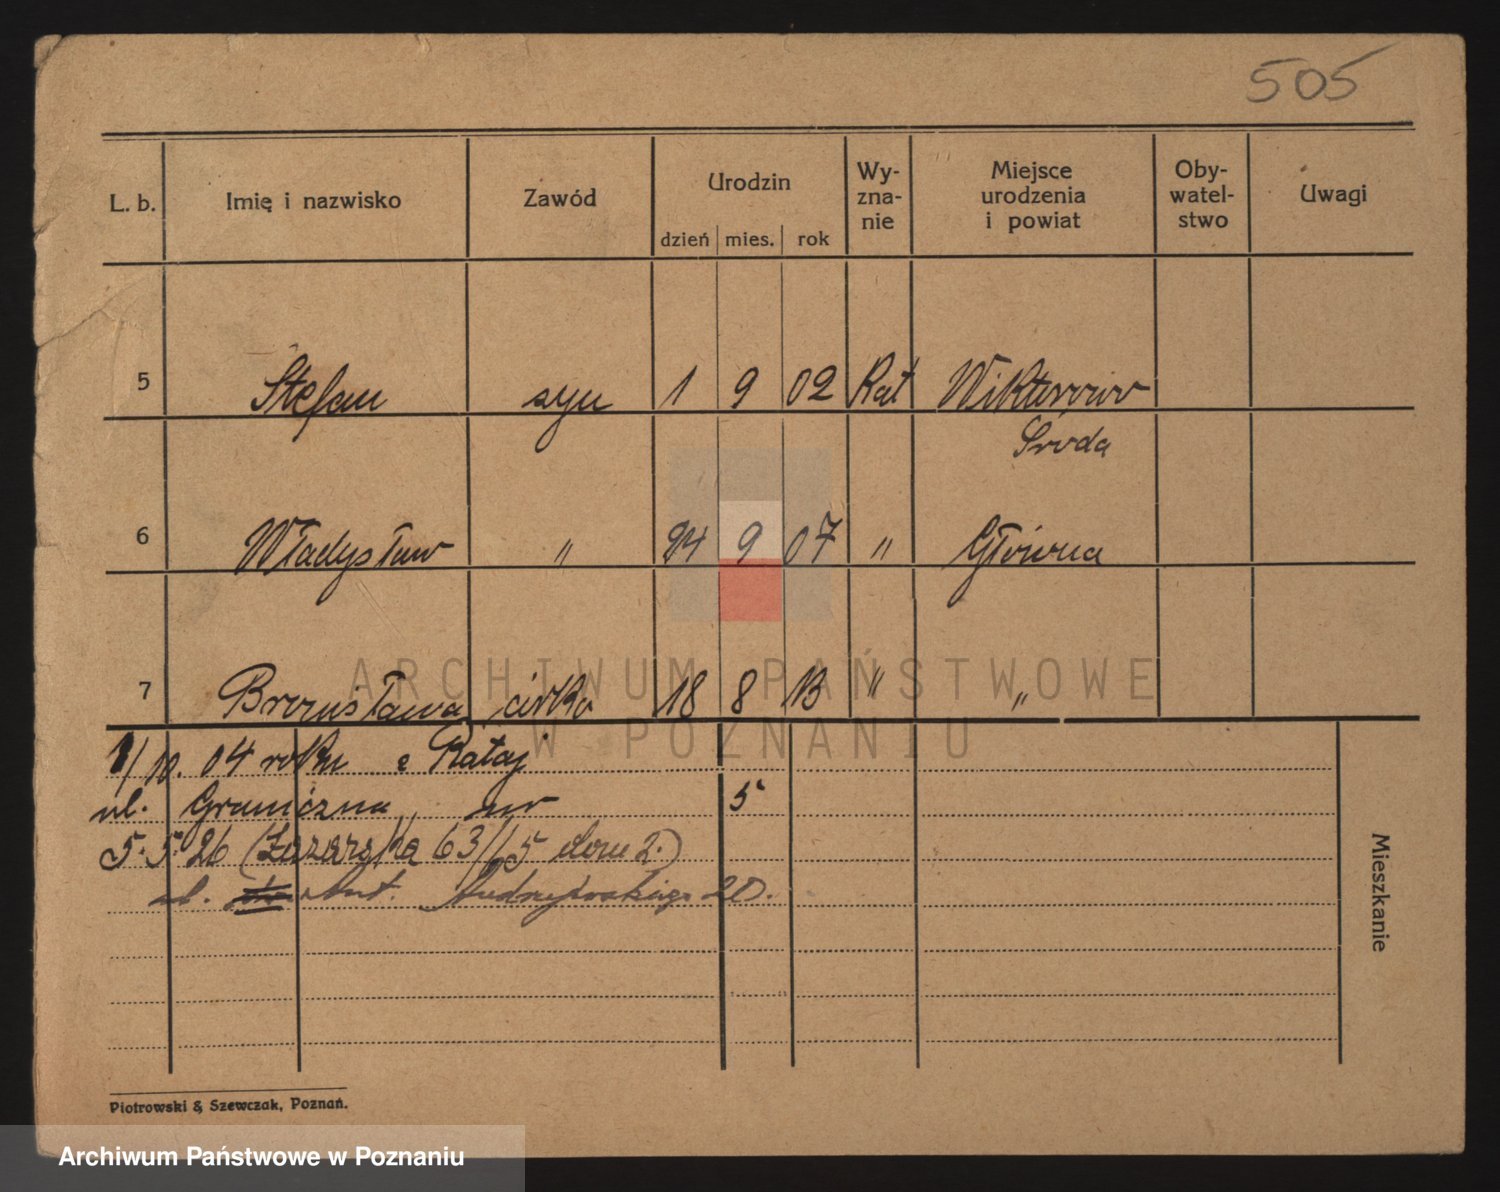 505
L. b. Imię i nazwisko Zawód Urodzin dzień mies. rok Wy-zna-nie Miejsce urodzenia i powiat Oby-watel-stwo Uwagi
5 Stefan syn 1 9 02 Kat Wiktorowo
Środa
6 Władysław " 24 9 07 " Główna
7 Bronisława córka 18 8 13 " "
1/10. 04 roku z Rataj
ul. Graniczna nr 5
5.5.26 (Łazarska 63/15 dom 2.)
ul. Ant. 20.
Mieszkanie
Piotrowski & Szewczak, Poznań.
ARCHIWUM PAŃSTWOWE
W POZNANIU
Archiwum Państwowe w Poznaniu